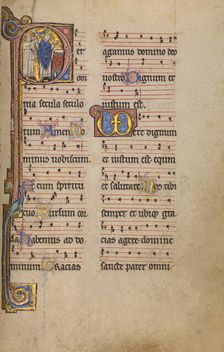 et
oia secula seculo
rum Amen Do
minus vobiscum
Et cum spiritu
tuo Sursum cor
da habemus ad do
minum Gracias
agamus domino deo
nostro Dignum et
iustum est.
Vere dignum
et iustum est equm
et salutare Nos
semper et ubiqz gra
cias agere domine
sancte pater omni